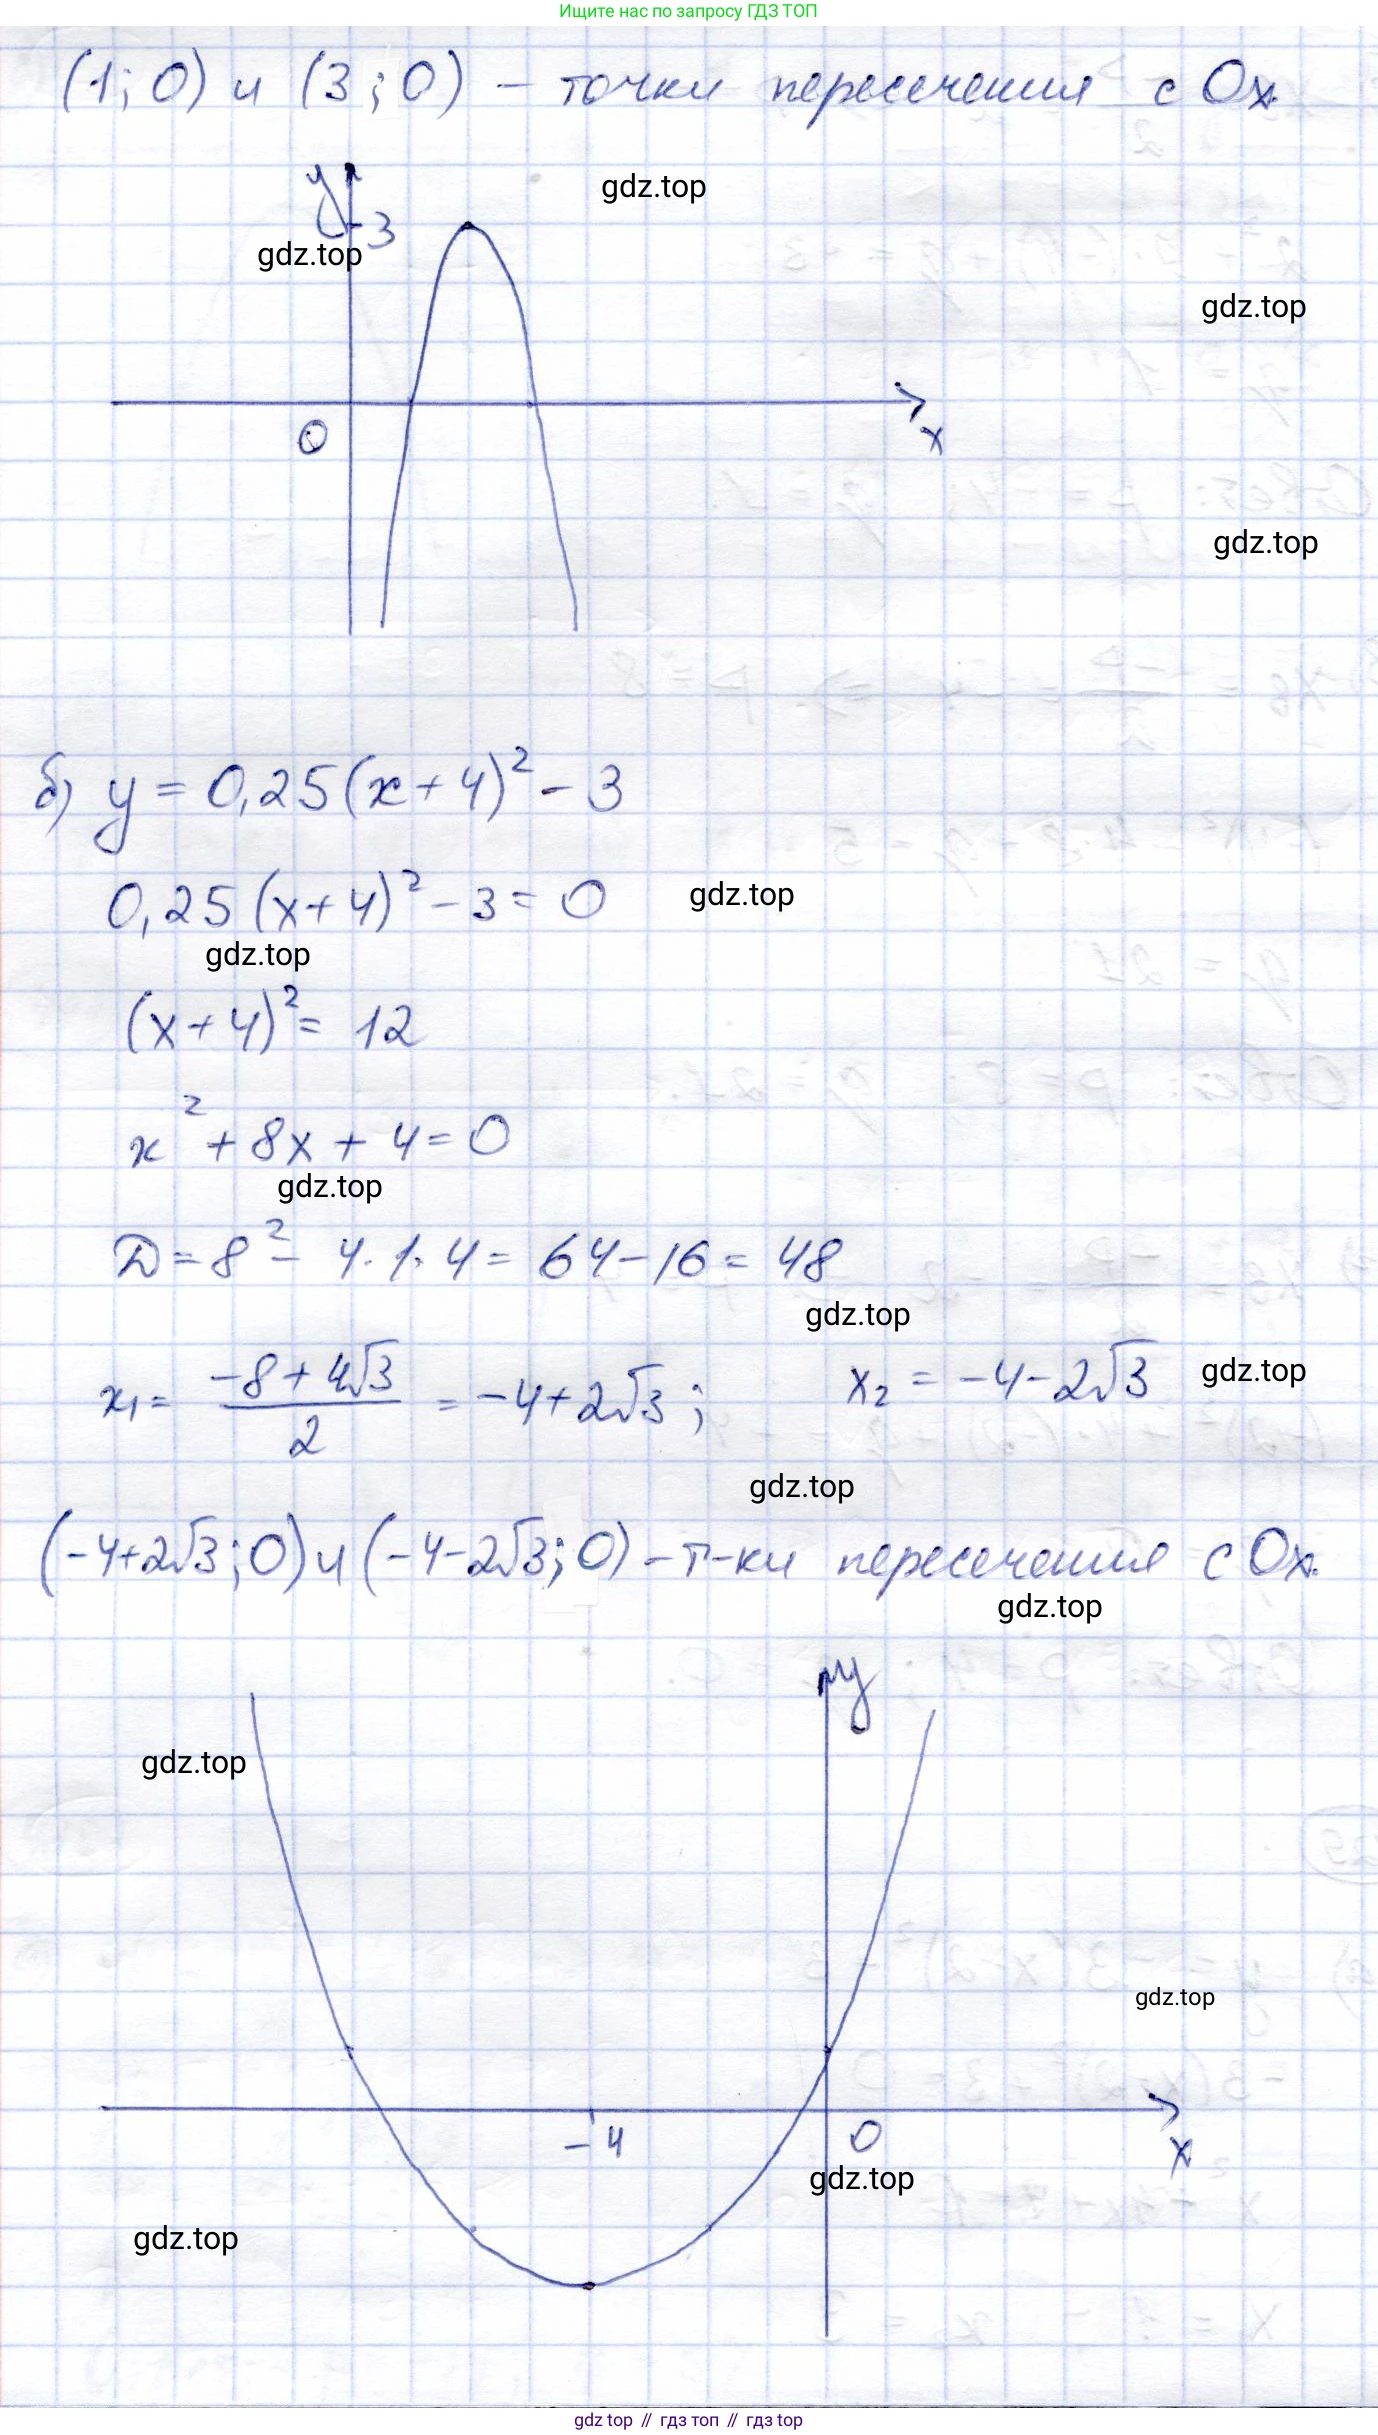 Ищите нас по запросу ГДЗ ТОП
(1; 0) и (3; 0) – точки пересечения с Ox.
gdz.top
y
3
gdz.top
gdz.top
0
x
gdz.top
б) y = 0,25(x+4)² - 3
0,25(x+4)² - 3 = 0
gdz.top
gdz.top
(x+4)² = 12
x² + 8x + 4 = 0
gdz.top
D = 8² - 4·1·4 = 64 - 16 = 48
gdz.top
x₁ = (-8+4√3)/2 = -4+2√3; x₂ = -4-2√3
gdz.top
gdz.top
(-4+2√3; 0) и (-4-2√3; 0) – т-ки пересечения с Ox.
gdz.top
y
gdz.top
gdz.top
-4
0
x
gdz.top
gdz.top
gdz top // гдз топ // гдз top